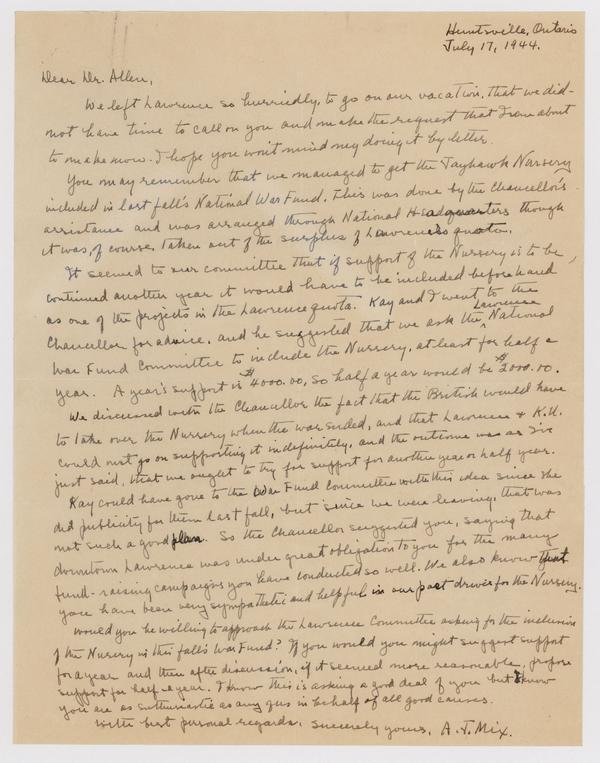 Huntsville, Ontario
July 17, 1944.
Dear Dr. Allen,
We left Lawrence so hurriedly, to go on our vacation, that we did
not have time to call on you and make the request that I am about
to make now. I hope you won't mind my doing it by letter.
You may remember that we managed to get the Jayhawk Nursery
included in last fall's National War Fund. This was done by the Chancellor's
assistance and was arranged through National Headquarters though
it was, of course, taken out of the surplus of Lawrence's quota.
It seemed to our committee that if support of the Nursery is to be
continued another year it would have to be included beforehand
as one of the projects in the Lawrence quota. Kay and I went to the
Chancellor for advice, and he suggested that we ask the Lawrence National
War Fund Committee to include the Nursery, at least for half a
year. A year's support is $4000.00, so half a year would be $2000.00.
We discussed with the Chancellor the fact that the British would have
to take over the Nursery when the war ended, and that Lawrence & K.U.
could not go on supporting it indefinitely, and the outcome was as I've
just said, that we ought to try for support for another year or half year.
Kay could have gone to the War Fund Committee with this idea since she
did publicity for them last fall, but since we were leaving, that was
not such a good plan. So the Chancellor suggested you, saying that
downtown Lawrence was under great obligation to you for the many
fund-raising campaigns you have conducted so well. We also know that
you have been very sympathetic and helpful in our past drives for the Nursery.
Would you be willing to approach the Lawrence Committee asking for the inclusion
of the Nursery in this fall's War Fund? If you would you might suggest support
for a year and then after discussion, if it seemed more reasonable, propose
support for half a year. I know this is asking a good deal of you but I know
you are as enthusiastic as any of us in behalf of all good causes.
With best personal regards, Sincerely yours, A. J. Mix.